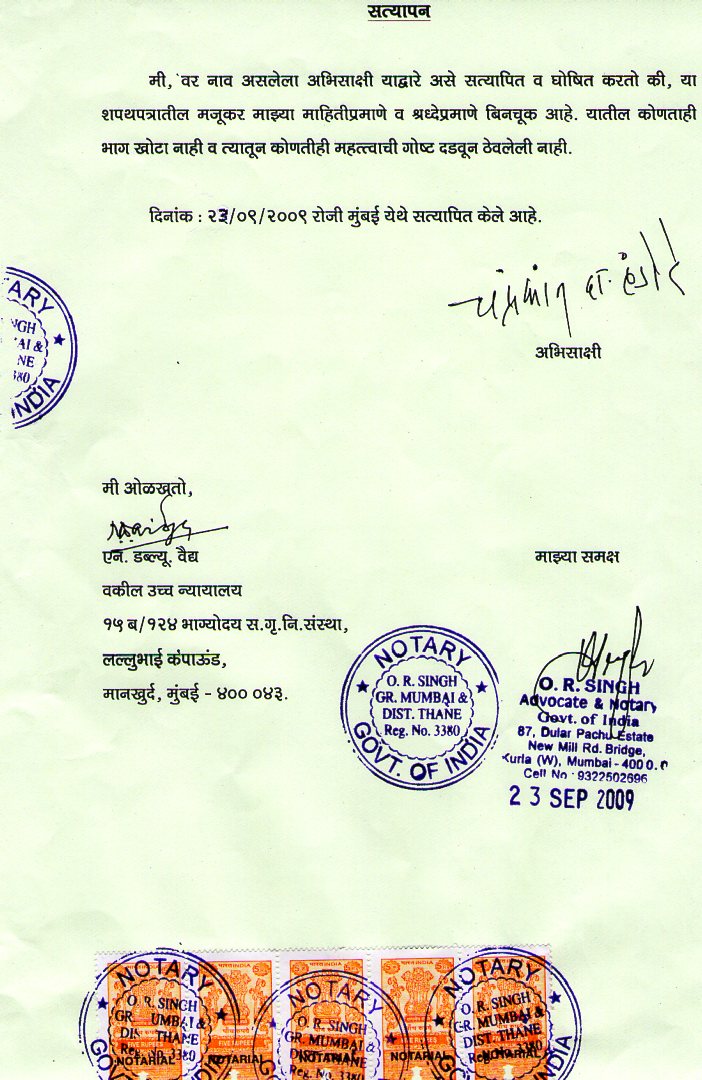 सत्यापन
मी, वर नाव असलेला अभिसाक्षी याद्वारे असे सत्यापित व घोषित करतो की, या
शपथपत्रातील मजूकर माझ्या माहितीप्रमाणे व श्रध्देप्रमाणे बिनचूक आहे. यातील कोणताही
भाग खोटा नाही व त्यातून कोणतीही महत्त्वाची गोष्ट दडवून ठेवलेली नाही.
दिनांक : २३/०९/२००९ रोजी मुंबई येथे सत्यापित केले आहे.
अभिसाक्षी
मी ओळखतो,
एन. डब्ल्यू. वैद्य
माझ्या समक्ष
वकील उच्च न्यायालय
१५ ब/१२४ भाग्योदय स.गृ.नि.संस्था,
लल्लुभाई कंपाऊंड,
मानखुर्द, मुंबई - ४०० ०४३.
NOTARY
O. R. SINGH
GR. MUMBAI &
DIST. THANE
Reg. No. 3380
GOVT. OF INDIA
O. R. SINGH
Advocate & Notary
Govt. of India
87, Dular Pachu Estate
New Mill Rd. Bridge,
Kurla (W), Mumbai - 400 0.
Cell No : 9322502696
23 SEP 2009
NOTARY
O. R. SINGH
GR. UMBAI &
DIST. THANE
Reg. No. 3380
NOTARIAL
NOTARIAL
NOTARY
O. R. SINGH
GR. MUMBAI &
NOTARIAL
NOTARIAL
NOTARY
O. R. SINGH
GR. MUMBAI &
DIST. THANE
NOTARIAL